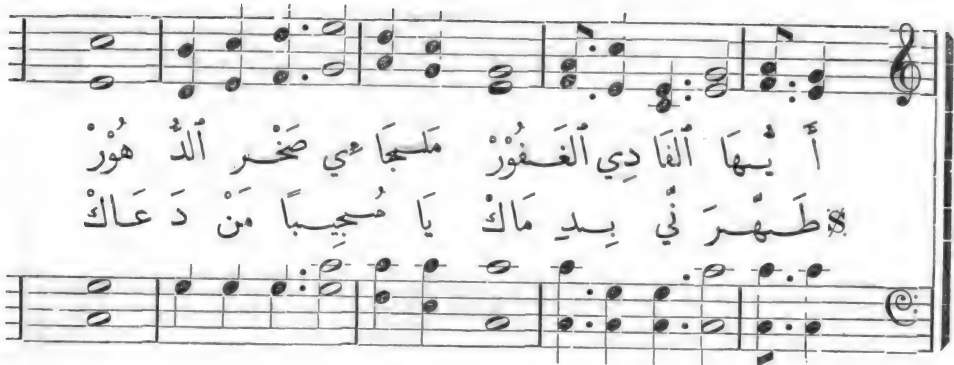 أَ يُّهَا ٱلْفَا دِي ٱلْغَفُوْرْ مَلْجَا ءِي صَخْر ٱلدُّ هُوْرْ
طَهَّرَ نِّي بِدِ مَاكْ يَا مُجِيبًا مَنْ دَ عَاكْ